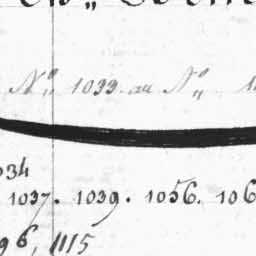 N° 1033 au N°
034
1037. 1039. 1056. 106
96, 1115